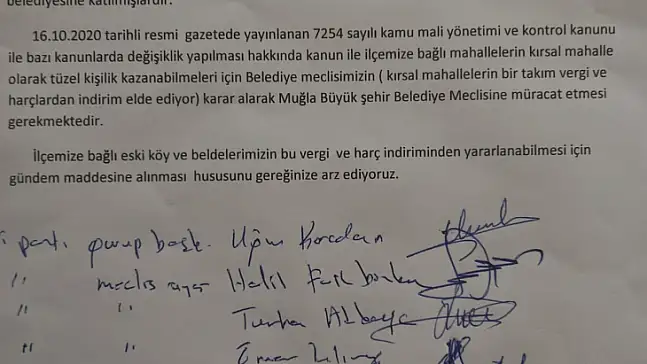 belediyesine katılmışlardır.
16.10.2020 tarihli resmi gazetede yayınlanan 7254 sayılı kamu mali yönetimi ve kontrol kanunu
ile bazı kanunlarda değişiklik yapılması hakkında kanun ile ilçemize bağlı mahallelerin kırsal mahalle
olarak tüzel kişilik kazanabilmeleri için Belediye meclisimizin ( kırsal mahallelerin bir takım vergi ve
harçlardan indirim elde ediyor) karar alarak Muğla Büyük şehir Belediye Meclisine müracat etmesi
gerekmektedir.
İlçemize bağlı eski köy ve beldelerimizin bu vergi ve harç indiriminden yararlanabilmesi için
gündem maddesine alınması hususunu gereğinize arz ediyoruz.
parti gurup başk. Uğur
" meclis Halil
" " Turhan Akbaya
" "